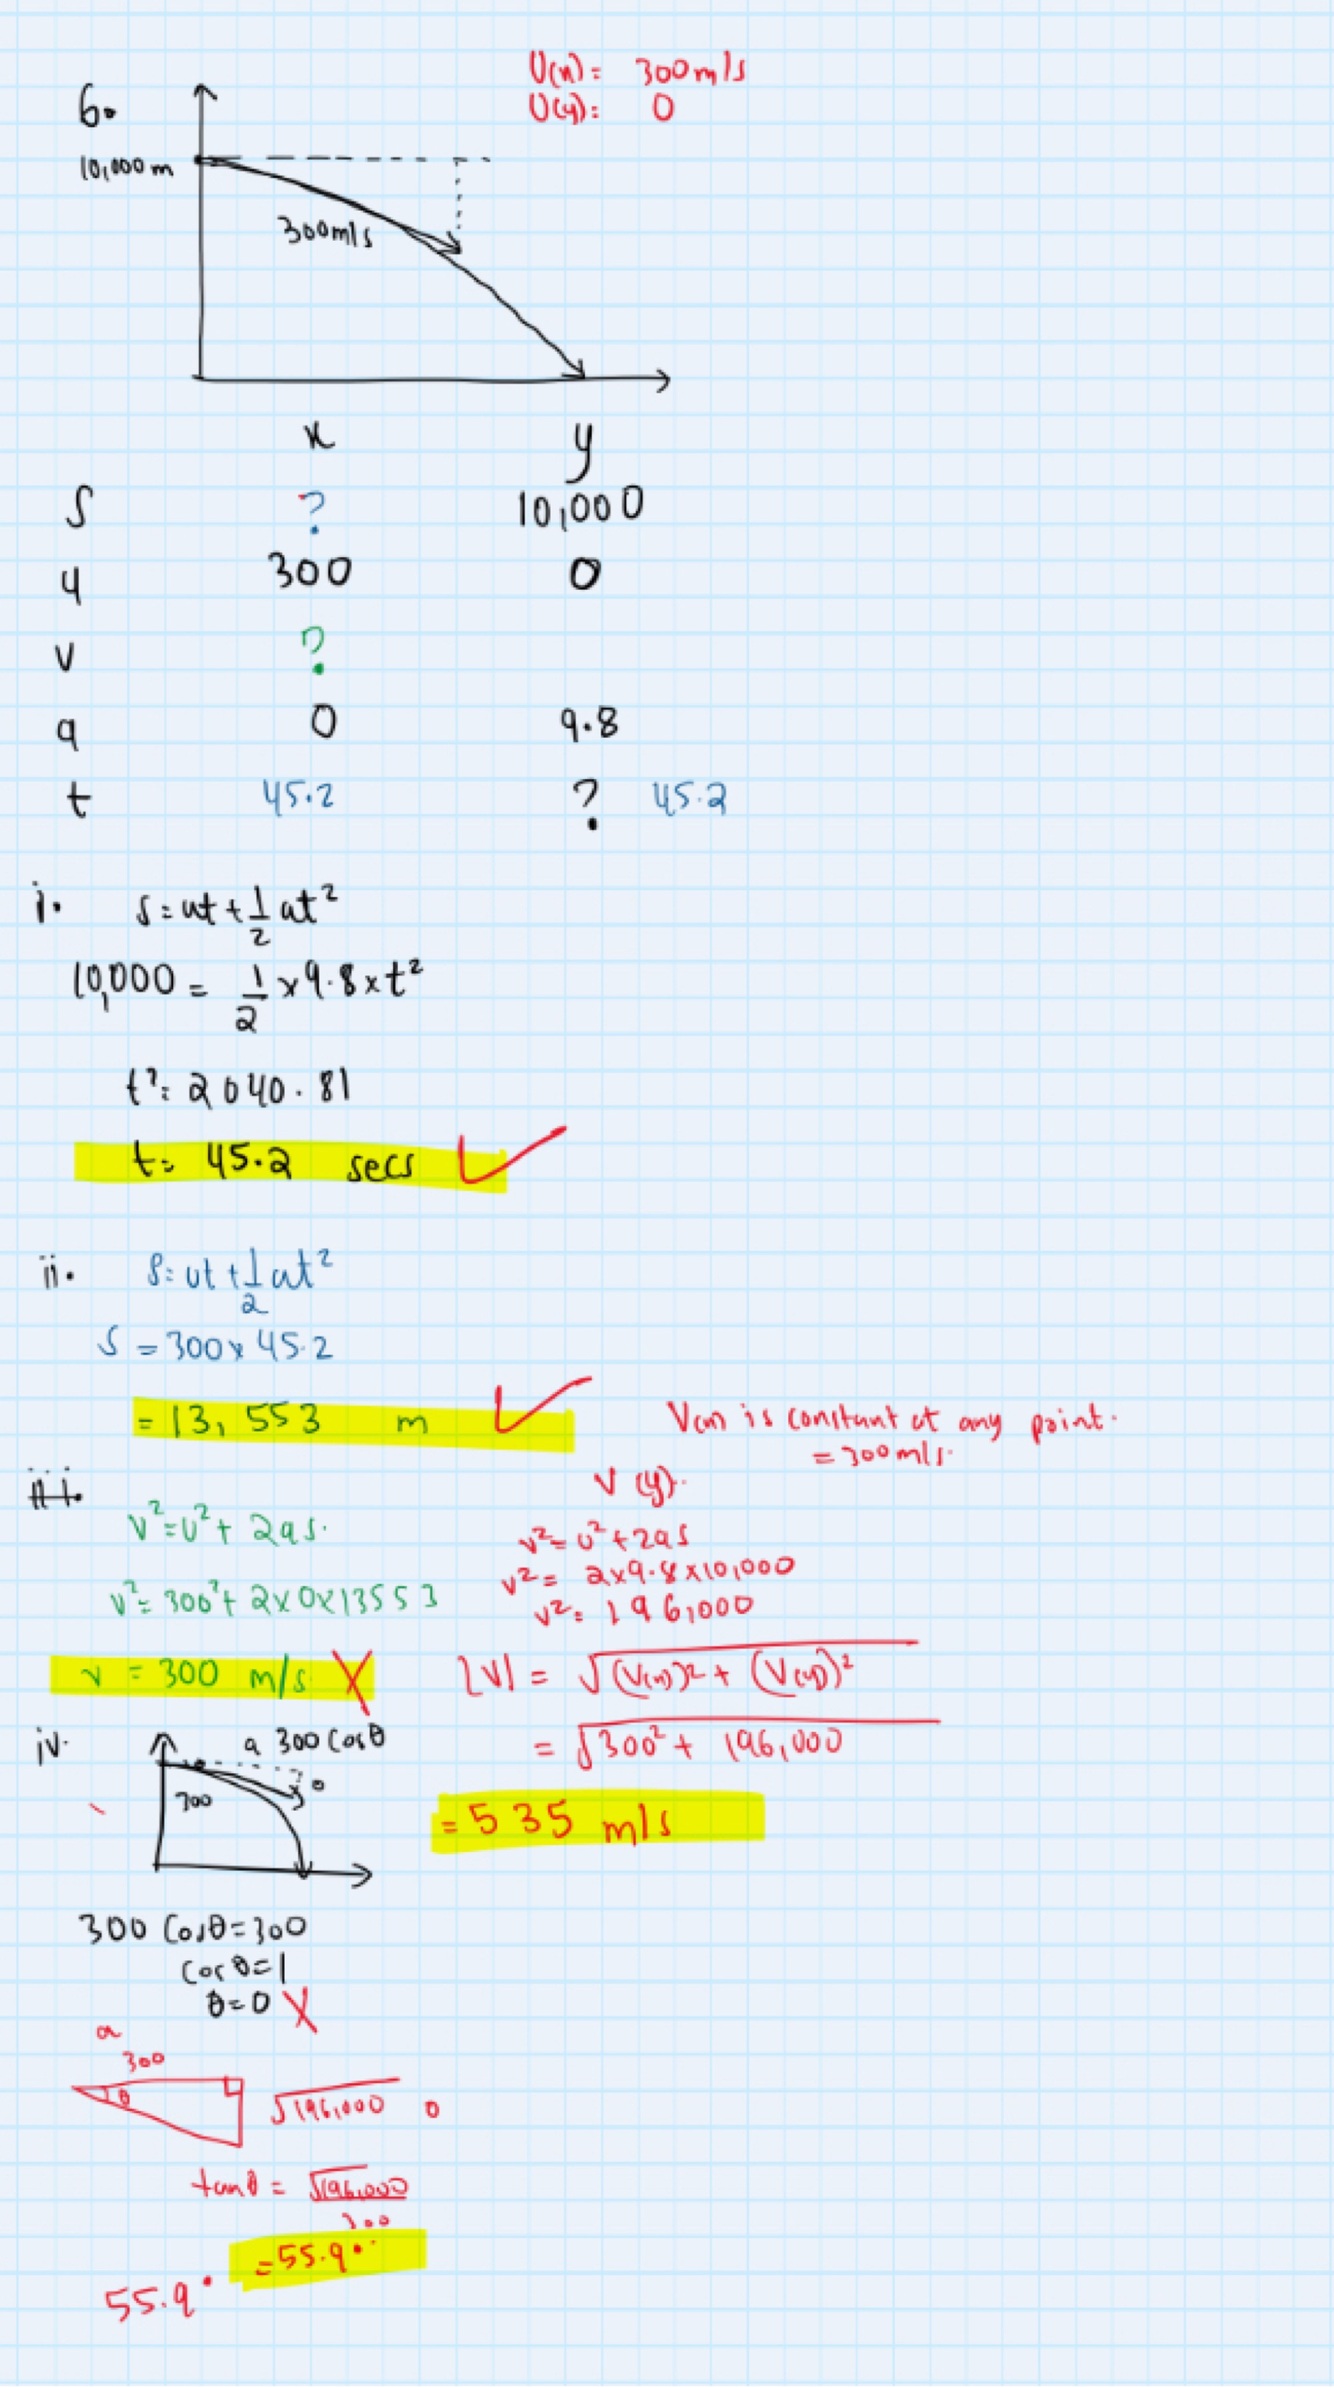 U(x): 300 m/s
U(y): 0
6.
10,000 m
300m/s
x y
S ? 10,000
u 300 0
v ?
a 0 9.8
t 45.2 ? 45.2
i. s=ut+1/2at²
10,000 = 1/2 x 9.8 x t²
t²= 2040.81
t= 45.2 secs ✓
ii. s=ut+1/2at²
S = 300x45.2
= 13,553 m ✓
V(x) is constant at any point.
= 300m/s.
iii.
v²=u²+2as.
v²= 300²+ 2x0x13553
v = 300 m/s. X
V (y).
v²= u²+2as
v²= 2x9.8x10,000
v²= 196,000
|V| = √(V(x))²+(V(y))²
= √300²+ 196,000
= 535 m/s
iv. a 300 Cosθ
300 o
300 Cosθ=300
Cosθ=1
θ=0 X
a
300
θ √196,000 o
tanθ = √196,000/300
=55.9°
55.9°